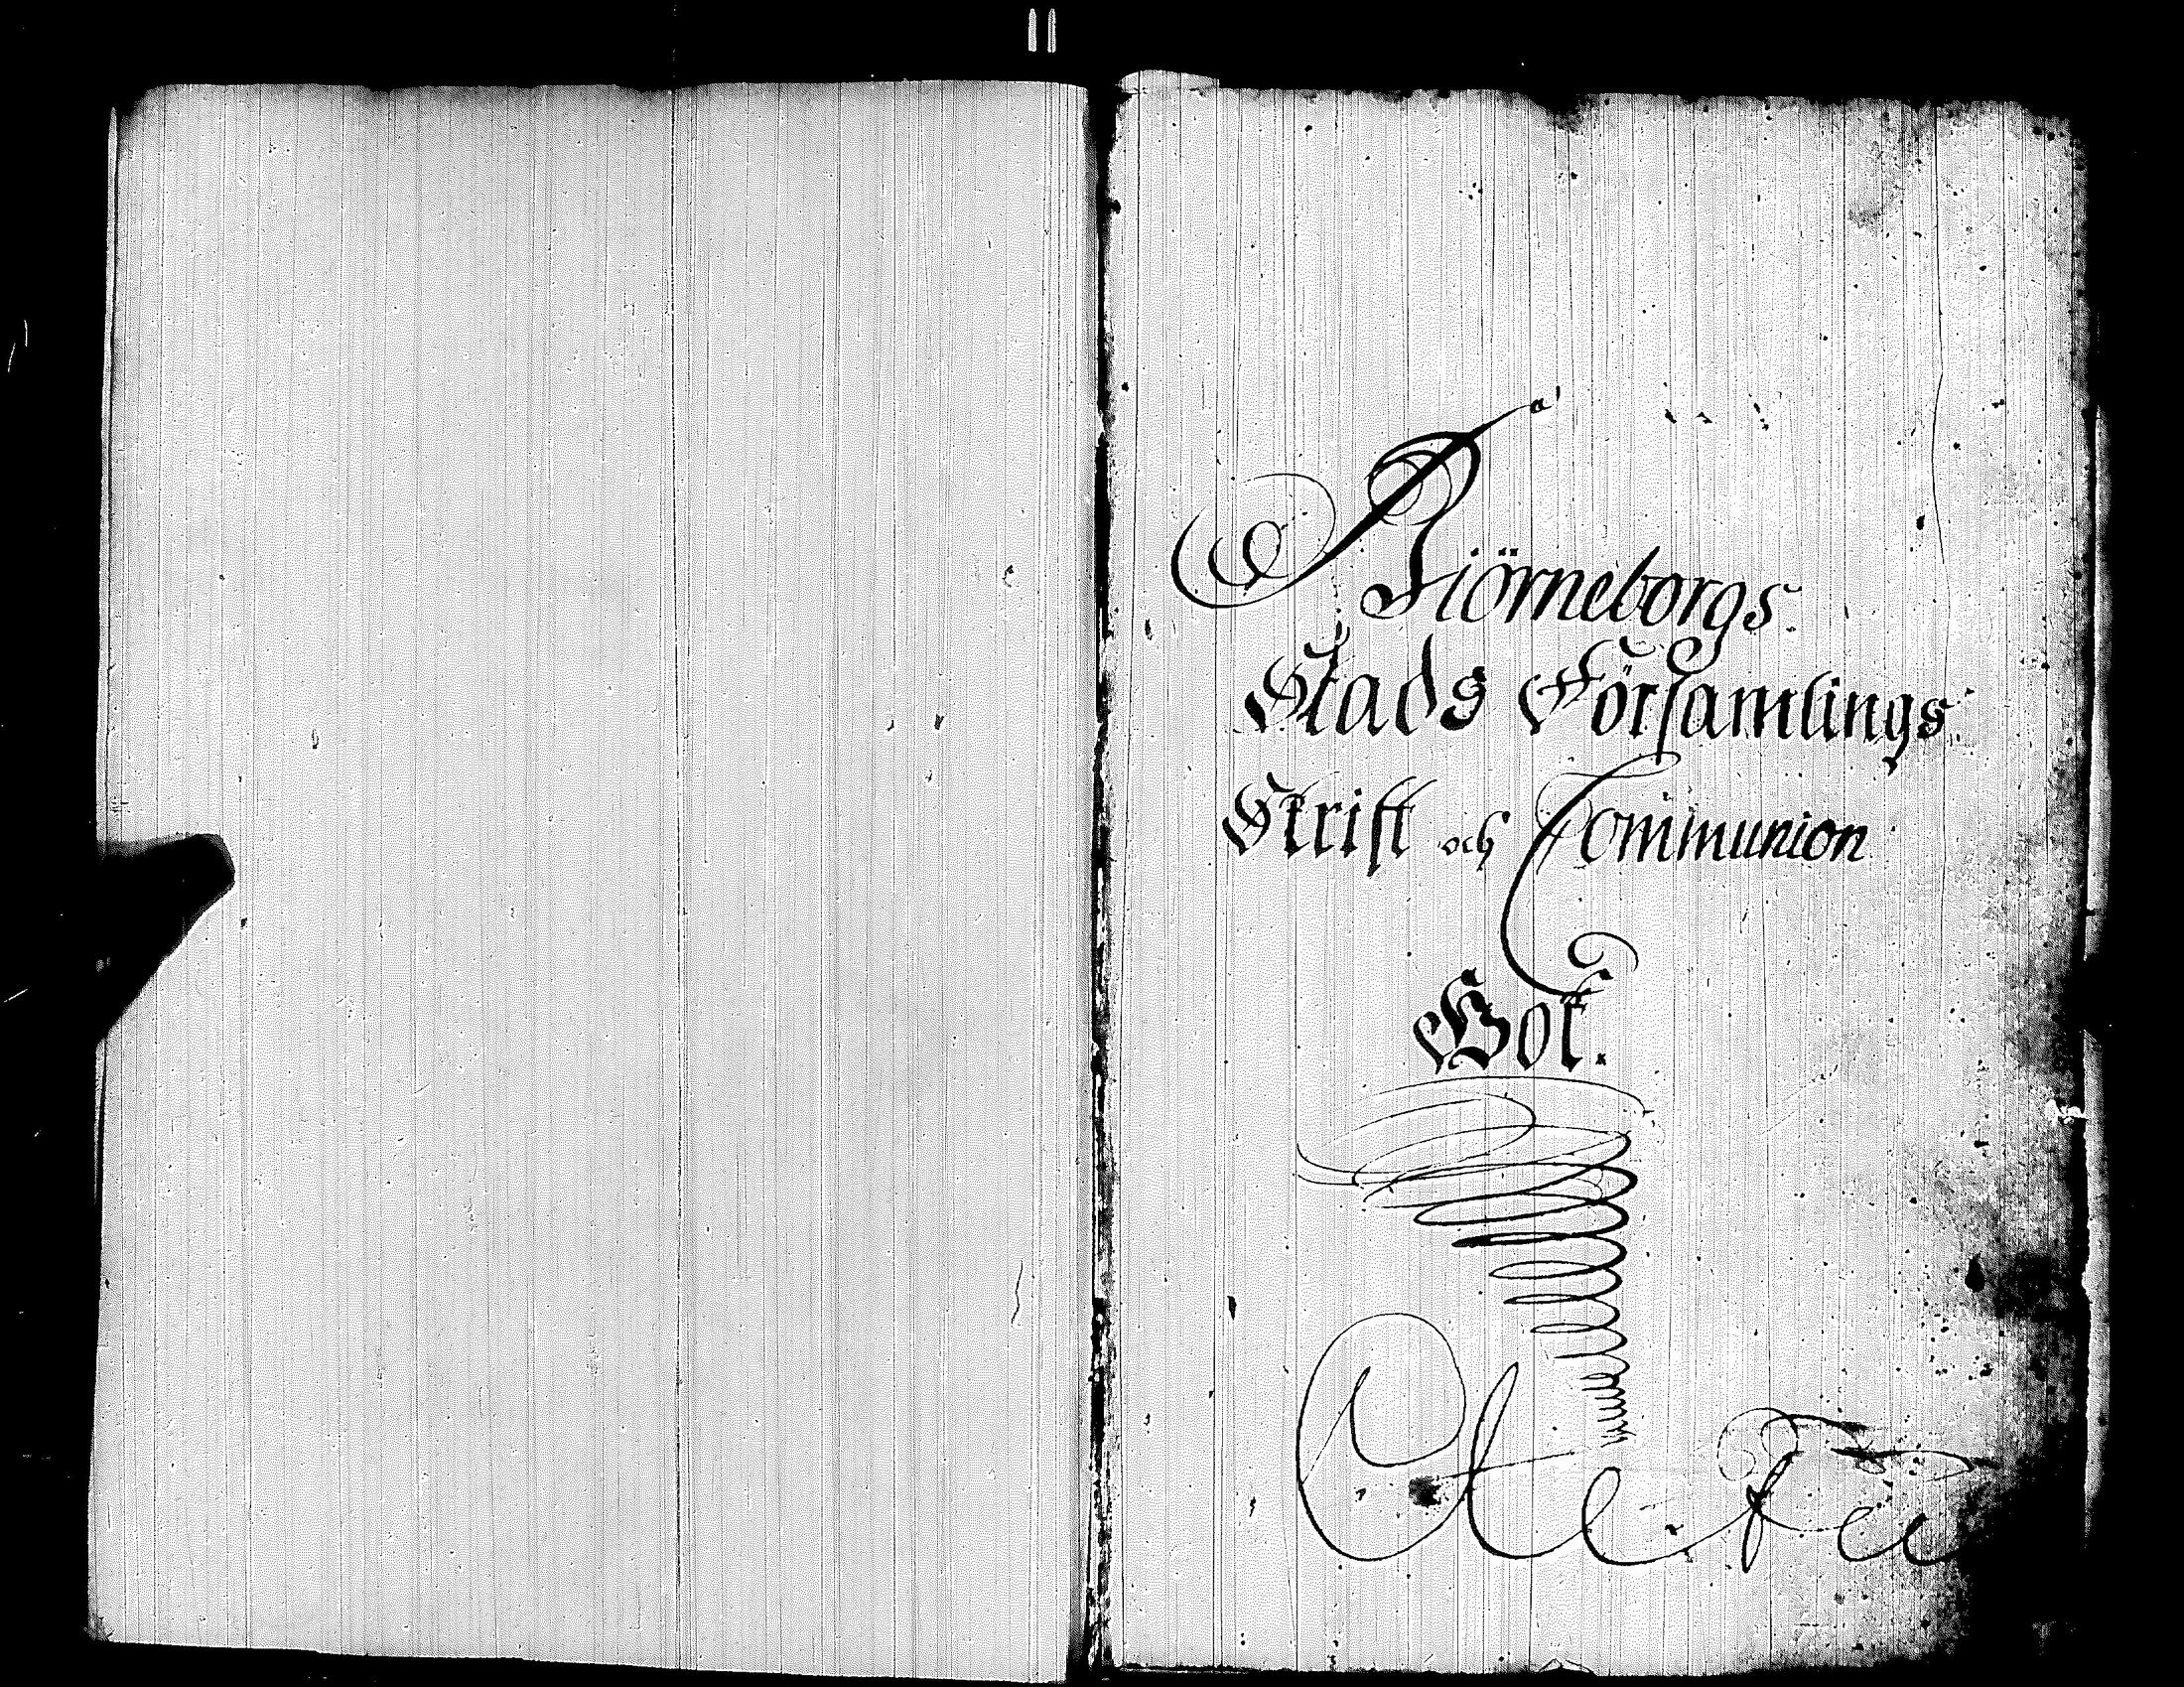 Biörneborgs
Stads Församlings
Skrift och Communion
Bok.